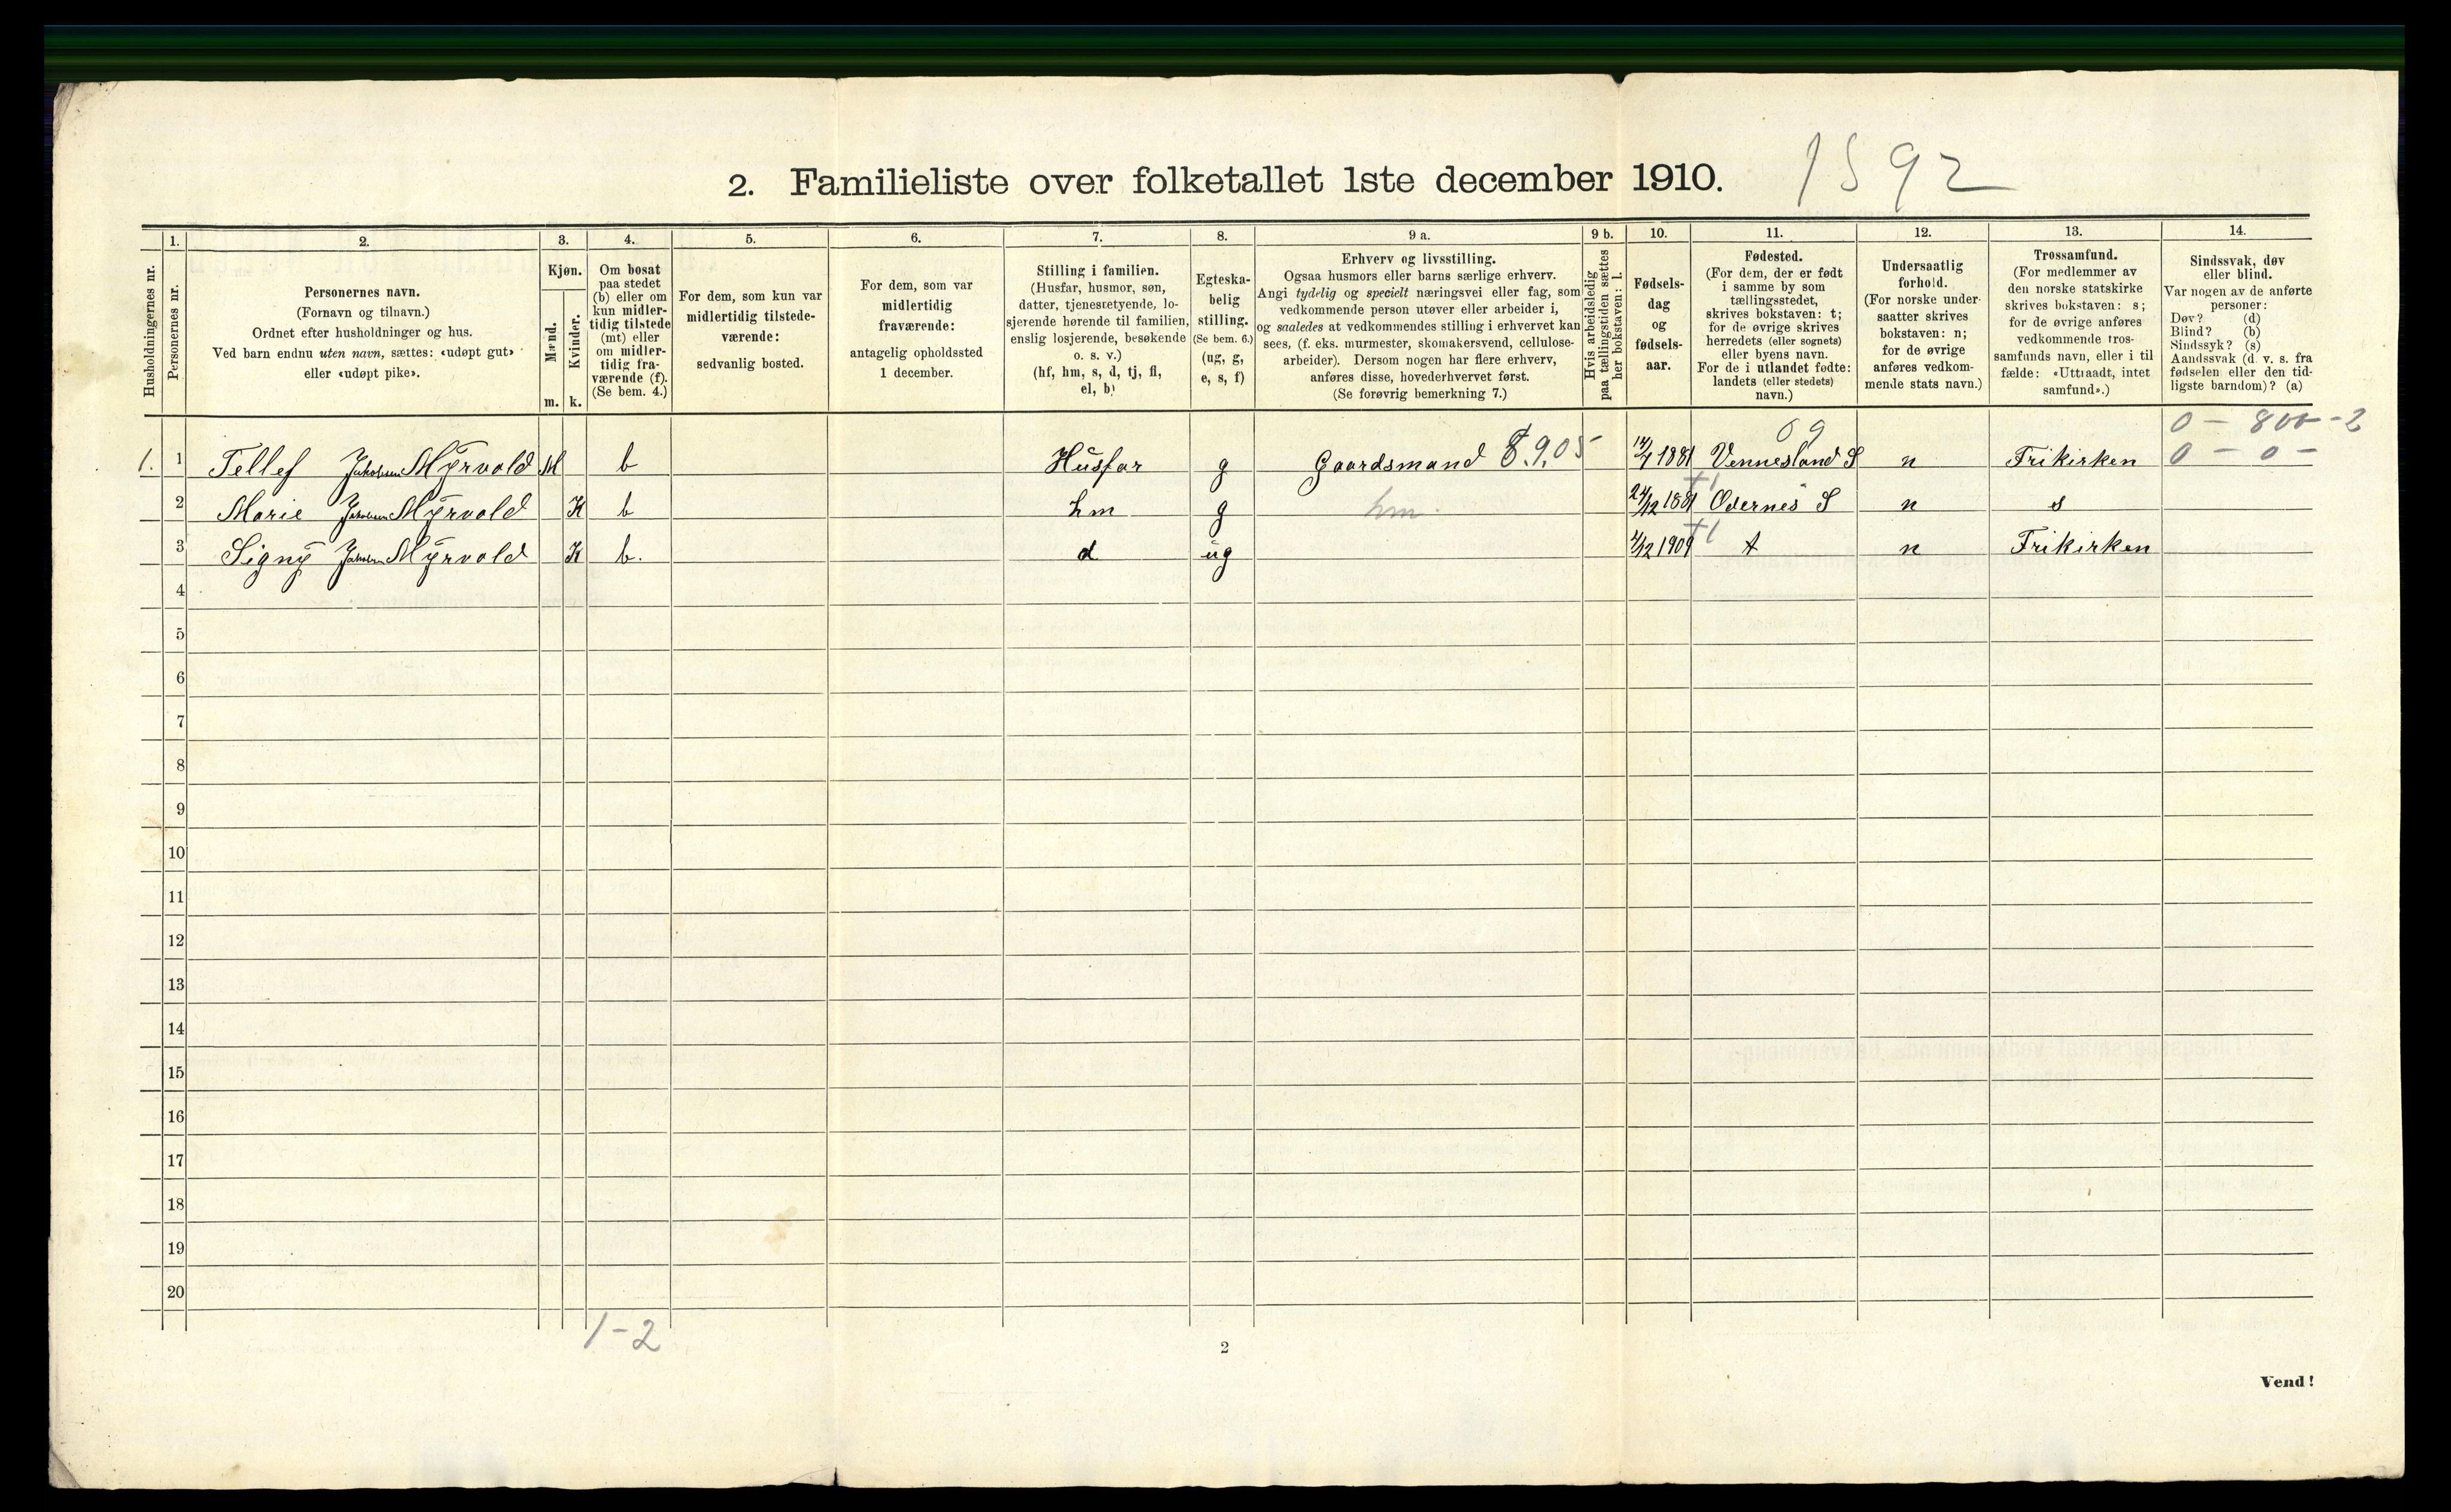 2. Familieliste over folketallet 1ste december 1910. 1592
Husholdningernes nr.
1.
Personernes nr.
2.
Personernes navn.
(Fornavn og tilnavn.)
Ordnet efter husholdninger og hus.
Ved barn endnu uten navn, sættes: «udøpt gut»
eller «udøpt pike».
3.
Kjøn.
Mænd.
m.
Kvinder.
k.
4.
Om bosat
paa stedet
(b) eller om
kun midler-
tidig tilstede
(mt) eller
om midler-
tidig fra-
værende (f).
(Se bem. 4.)
5.
For dem, som kun var
midlertidig tilstede-
værende:
sedvanlig bosted.
6.
For dem, som var
midlertidig
fraværende:
antagelig opholdssted
1 december.
7.
Stilling i familien.
(Husfar, husmor, søn,
datter, tjenestetyende, lo-
sjerende hørende til familien,
enslig losjerende, besøkende
o. s. v.)
(hf, hm, s, d, tj, fl,
el, b)
8.
Egteska-
belig
stilling.
(Se bem. 6.)
(ug, g,
e, s, f)
9 a.
Erhverv og livsstilling.
Ogsaa husmors eller barns særlige erhverv.
Angi tydelig og specielt næringsvei eller fag, som
vedkommende person utøver eller arbeider i,
og saaledes at vedkommendes stilling i erhvervet kan
sees, (f. eks. murmester, skomakersvend, cellulose-
arbeider). Dersom nogen har flere erhverv,
anføres disse, hovederhvervet først.
(Se forøvrig bemerkning 7.)
9 b.
Hvis arbeidsledig
paa tællingstiden sættes
her bokstaven: l.
10.
Fødsels-
dag
og
fødsels-
aar.
11.
Fødested.
(For dem, der er født
i samme by som
tællingsstedet,
skrives bokstaven: t;
for de øvrige skrives
herredets (eller sognets)
eller byens navn.
For de i utlandet fødte:
landets (eller stedets)
navn.)
12.
Undersaatlig
forhold.
(For norske under-
saatter skrives
bokstaven: n;
for de øvrige
anføres vedkom-
mende stats navn.)
13.
Trossamfund.
(For medlemmer av
den norske statskirke
skrives bokstaven: s;
for de øvrige anføres
vedkommende tros-
samfunds navn, eller i til
fælde: «Uttraadt, intet
samfund».)
14.
Sindssvak, døv
eller blind.
Var nogen av de anførte
personer:
Døv? (d)
Blind? (b)
Sindssyk? (s)
Aandssvak (d. v. s. fra
fødselen eller den tid-
ligste barndom)? (a)
09 0 - 800 - 2
1. 1 Tellef Jakobsen Myrvold M b Husfar g Gaardsmand 8.9.05 1881 Vennesland S n Frikirken 0 - 0 -
2 Marie Jakobsen Myrvold K b hm g hm. 24/12 1881 Odernes S n s
3 Signy Jakobsen Myrvold K b. d ug 1909 t n Frikirken
4
5
6
7
8
9
10
11
12
13
14
15
16
17
18
19
20
1-2
2
Vend!